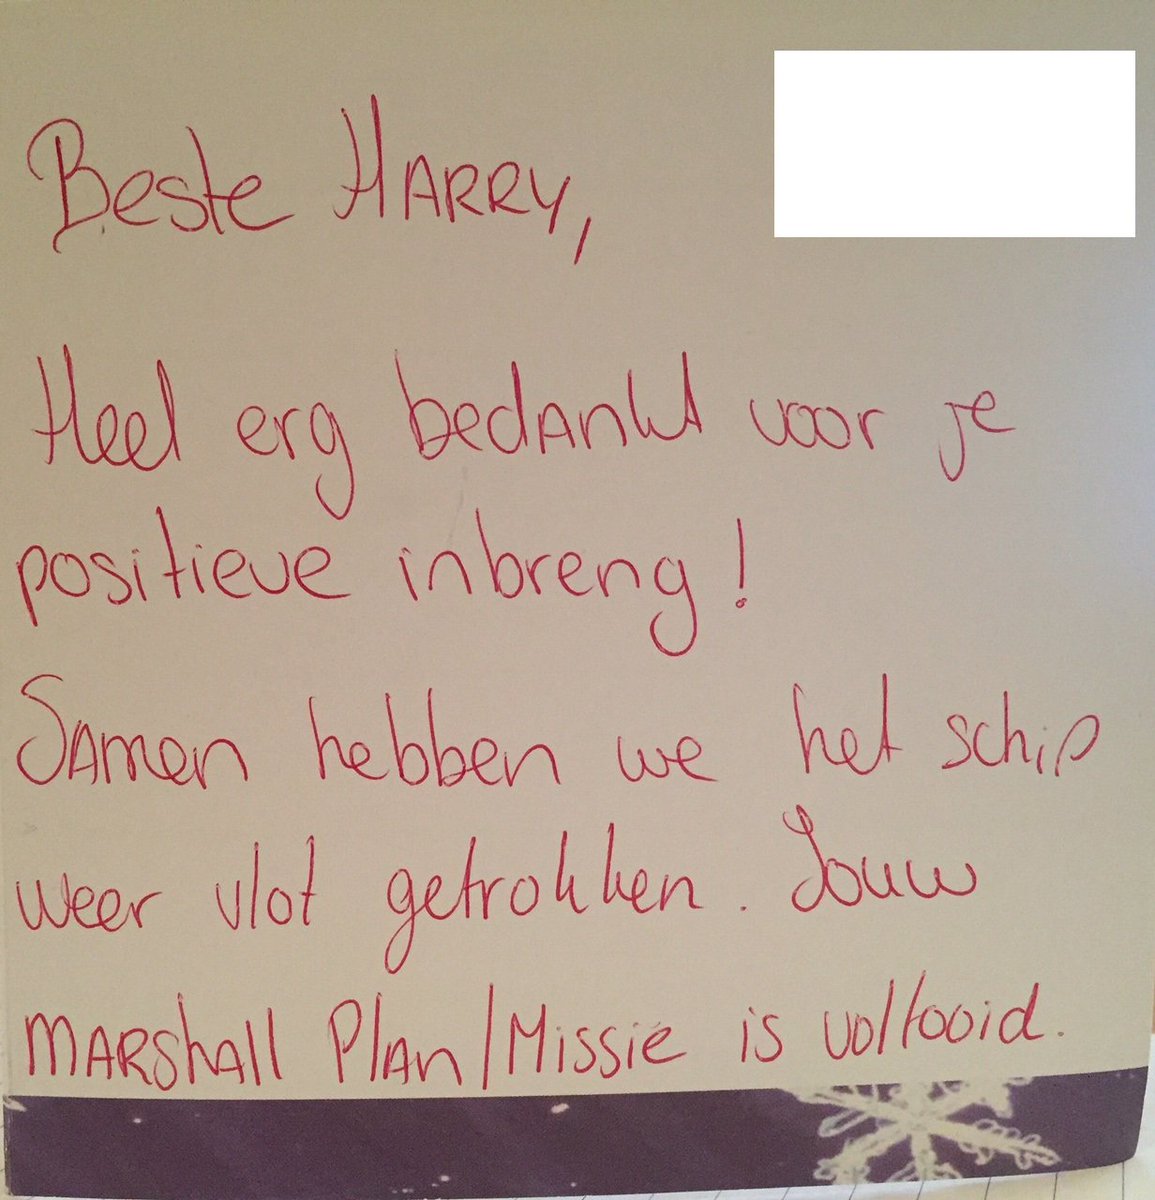 Beste HARRY,
Heel erg bedankt voor je
positieve inbreng!
Samen hebben we het schip
weer vlot getrokken. Jouw
MARShall Plan/Missie is voltooid.